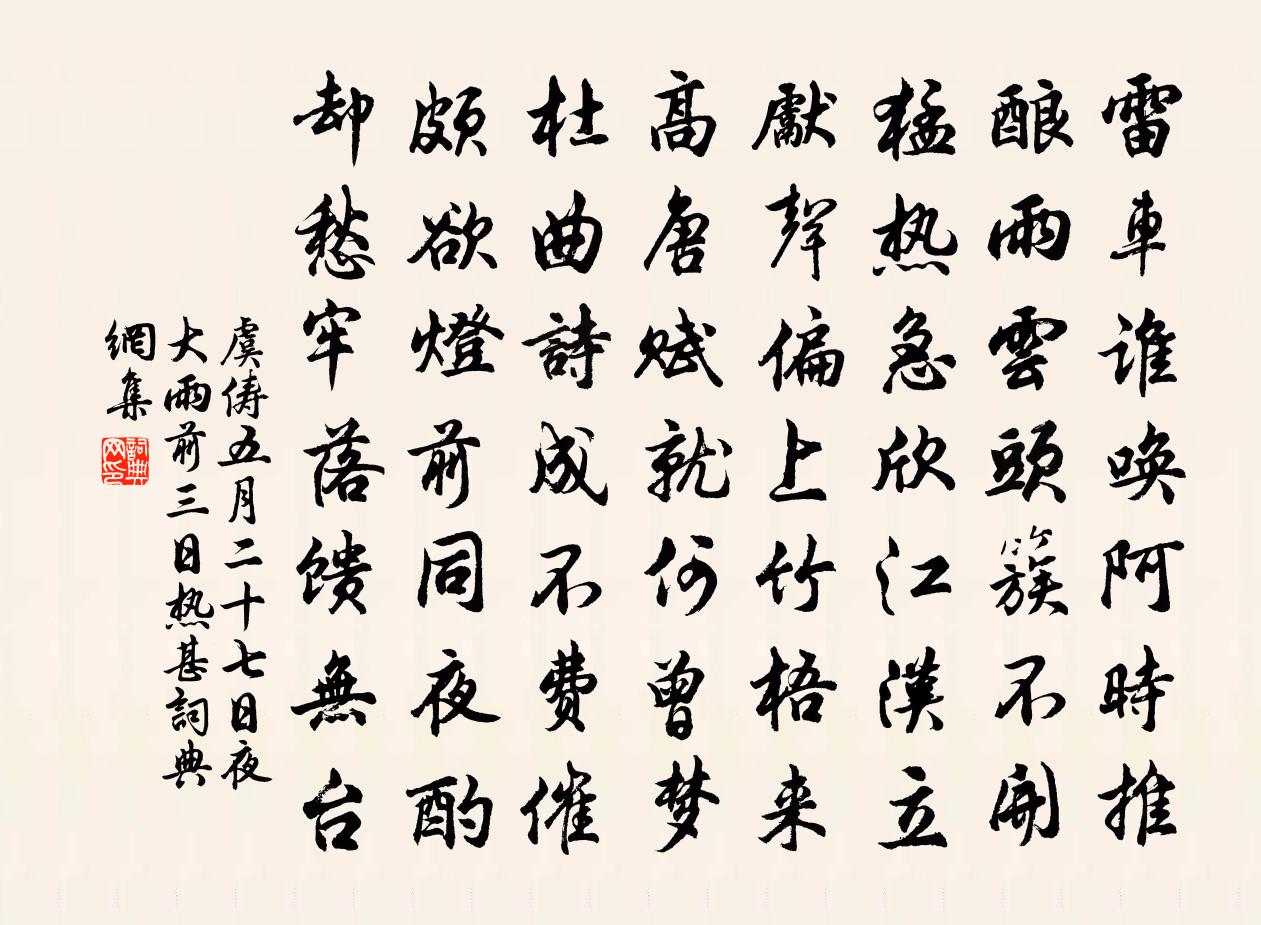 雷車谁唤阿時推
酿雨雲頭簇不開
猛热急欣江漢立
獻聲偏上竹梧来
高唐赋就何曾梦
杜曲詩成不费催
頗欲燈前同夜酌
却愁牢落馈無台
虞俦五月二十七日夜
大雨前三日热甚詞典
網集
詞典网印